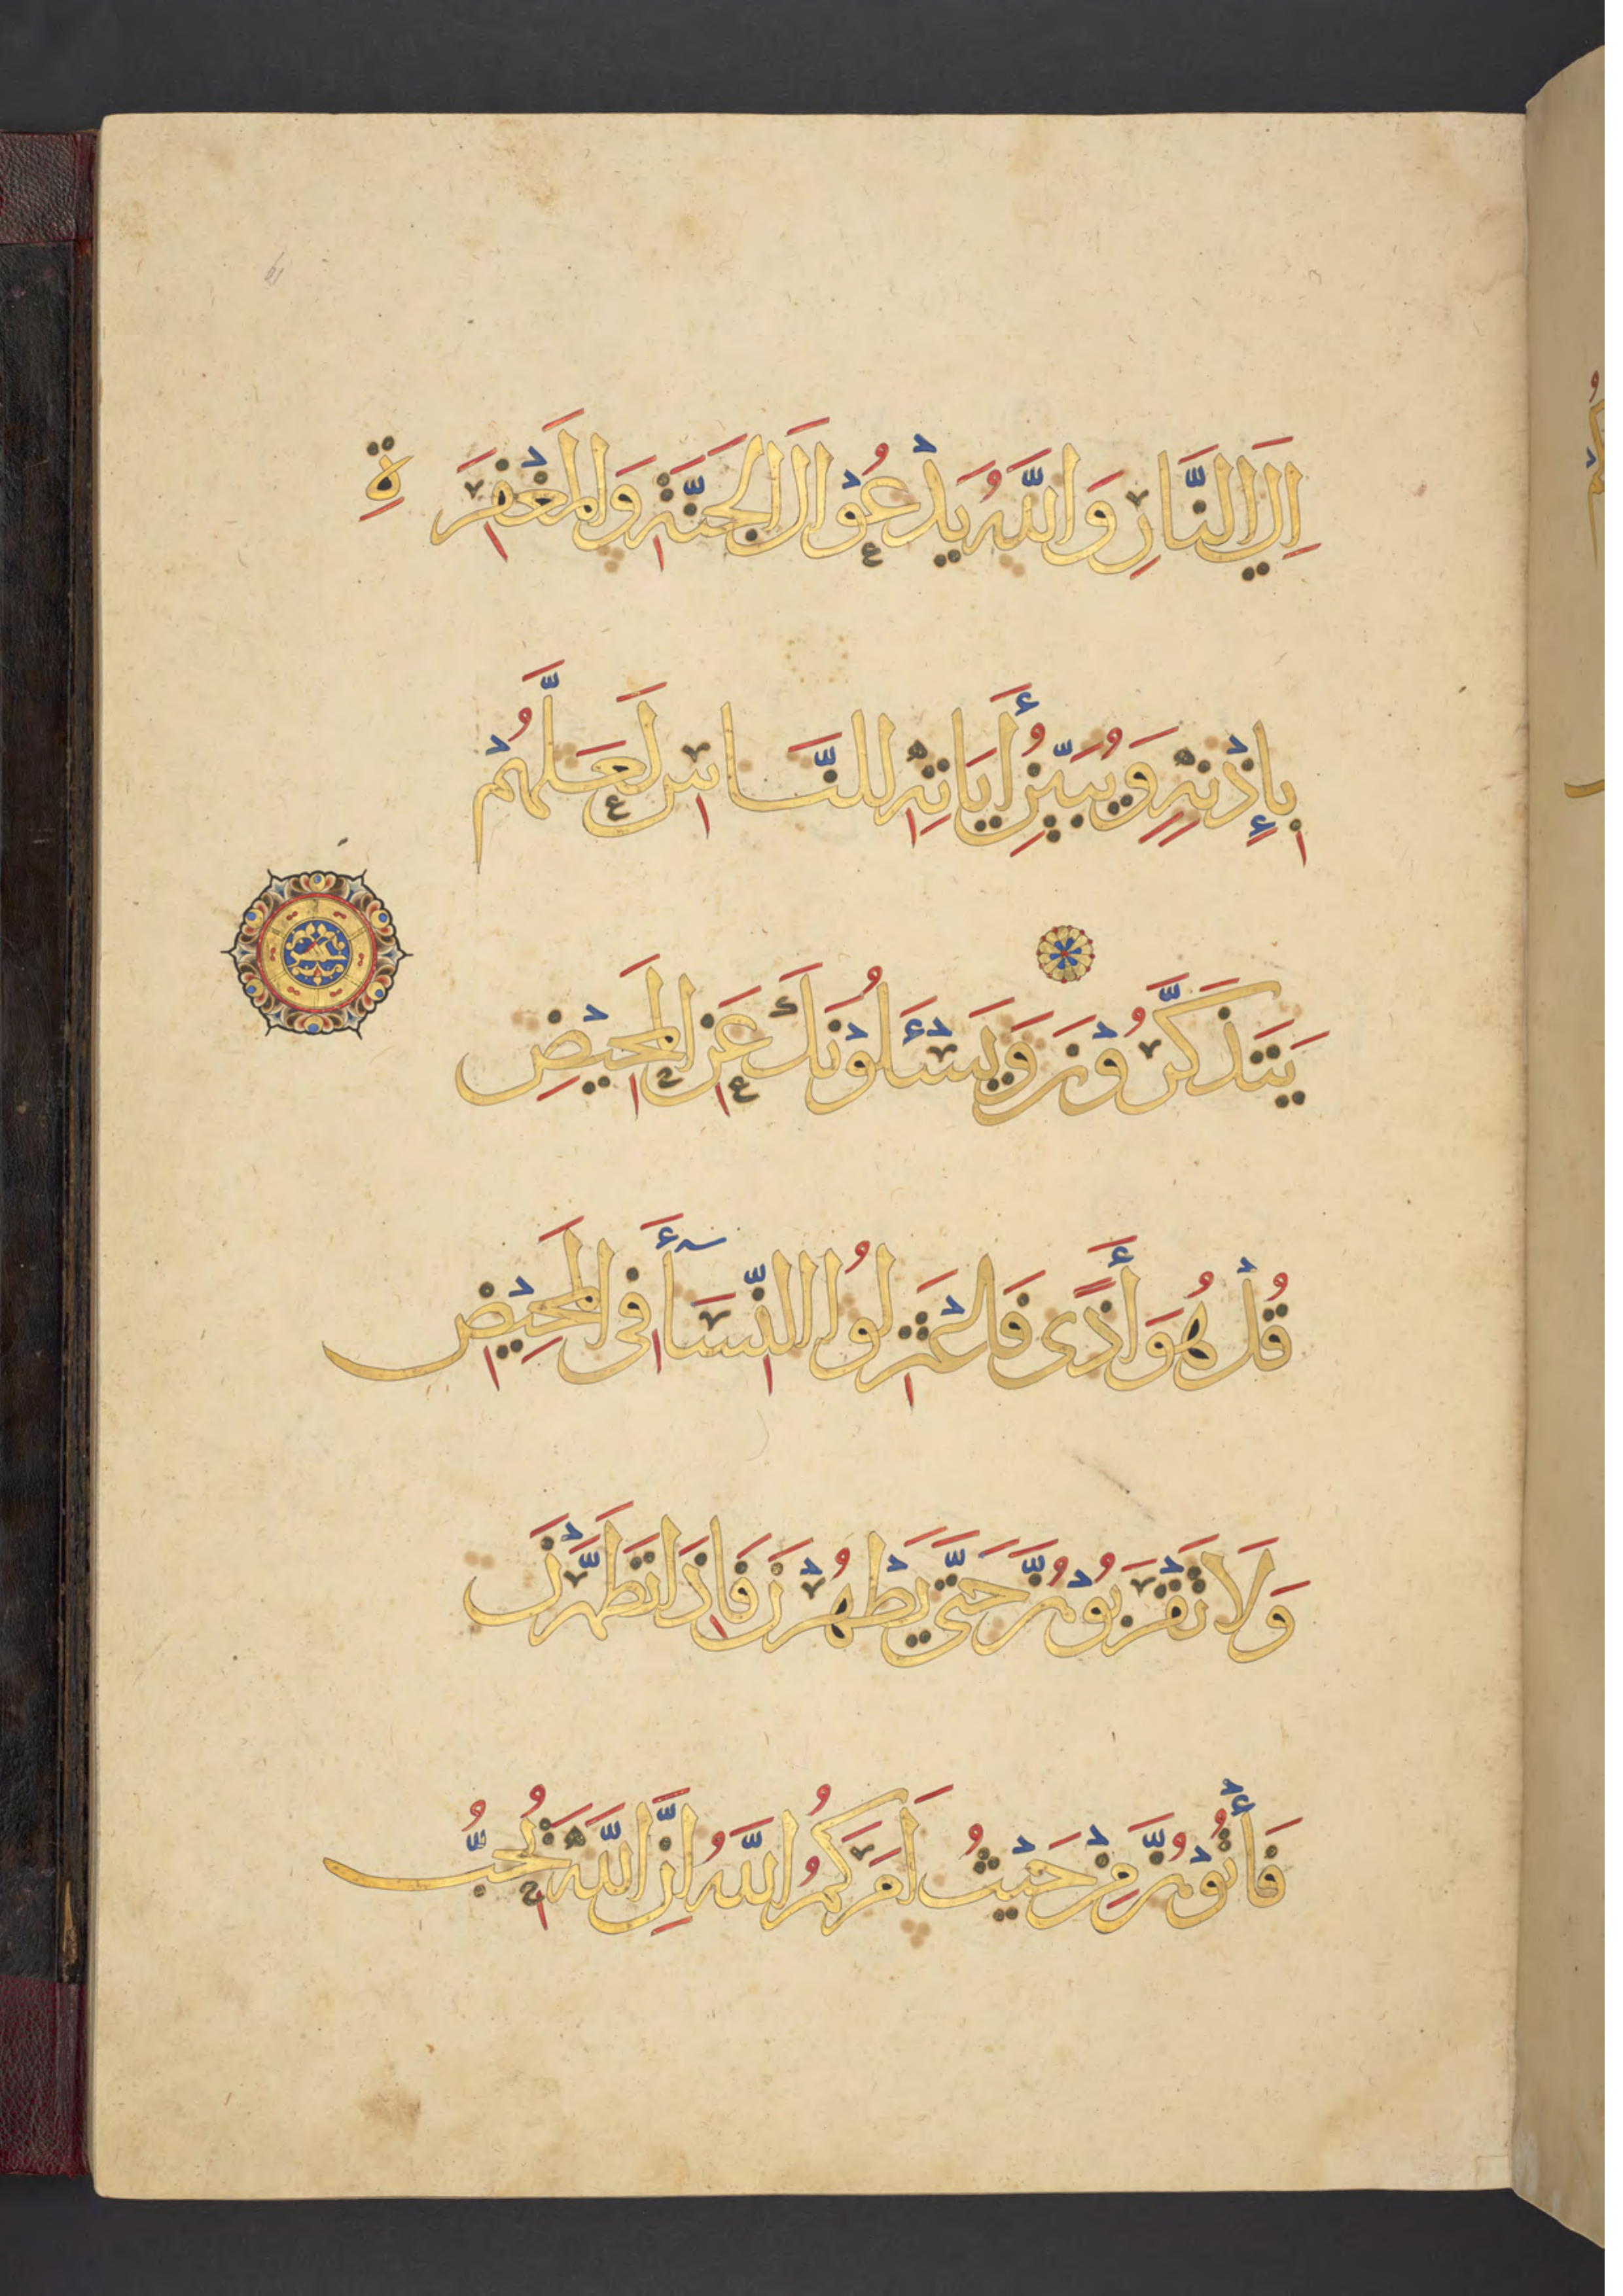 اِلَى النَّارِ وَاللَّهُ يَدْعُوْا اِلَى الجَنَّةِ وَالمَغْفِرَةِ
بِإِذْنِهٖ وَيُبَيِّنُ أَيَاتِهِ لِلنَّاسِ لَعَلَّهُمْ
يَتَذَكَّرُوْنَ وَيَسْئَلُوْنَكَ عَنِ المَحِيْضِ
قُلْ هُوَ أَذًى فَاعْتَزِلُوا النِّسَآءَ فِى المَحِيْضِ
وَلَا تَقْرَبُوْهُنَّ حَتَّى يَطْهُرْنَ فَاِذَا تَطَهَّرْنَ
فَأْتُوْهُنَّ مِنْ حَيْثُ اَمَرَكُمُ اللَّهُ اِنَّ اللَّهَ يُحِبُّ